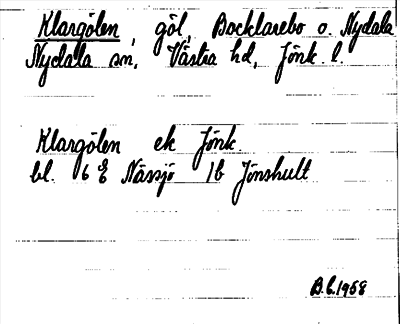 Klargölen, göl, Bocklarebo o. Nydala
Nydala sn, Västra hd, Jönk. l.
Klargölen ek Jönk.
bl. 6 E Nässjö 1b Jönshult
B.L.1968